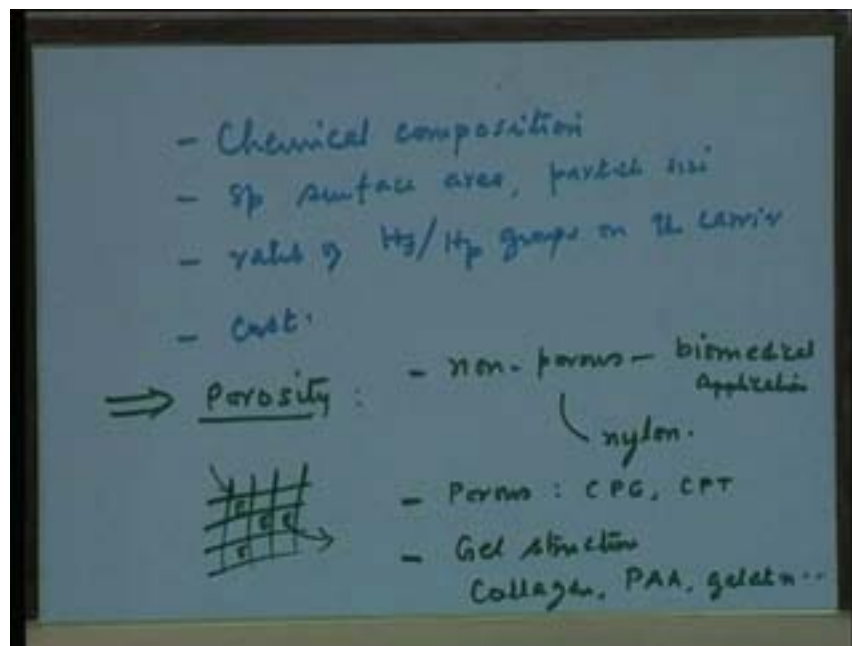 - Chemical composition
- Sp surface area, particle size
- ratio of Hy/Hp groups on the carrier
- Cost.
⇒ Porosity : - non-porous - biomedical
Application
nylon.
E
E E
E
- Porous : CPG, CPT
- Gel structure
Collagen, PAA, gelatn...